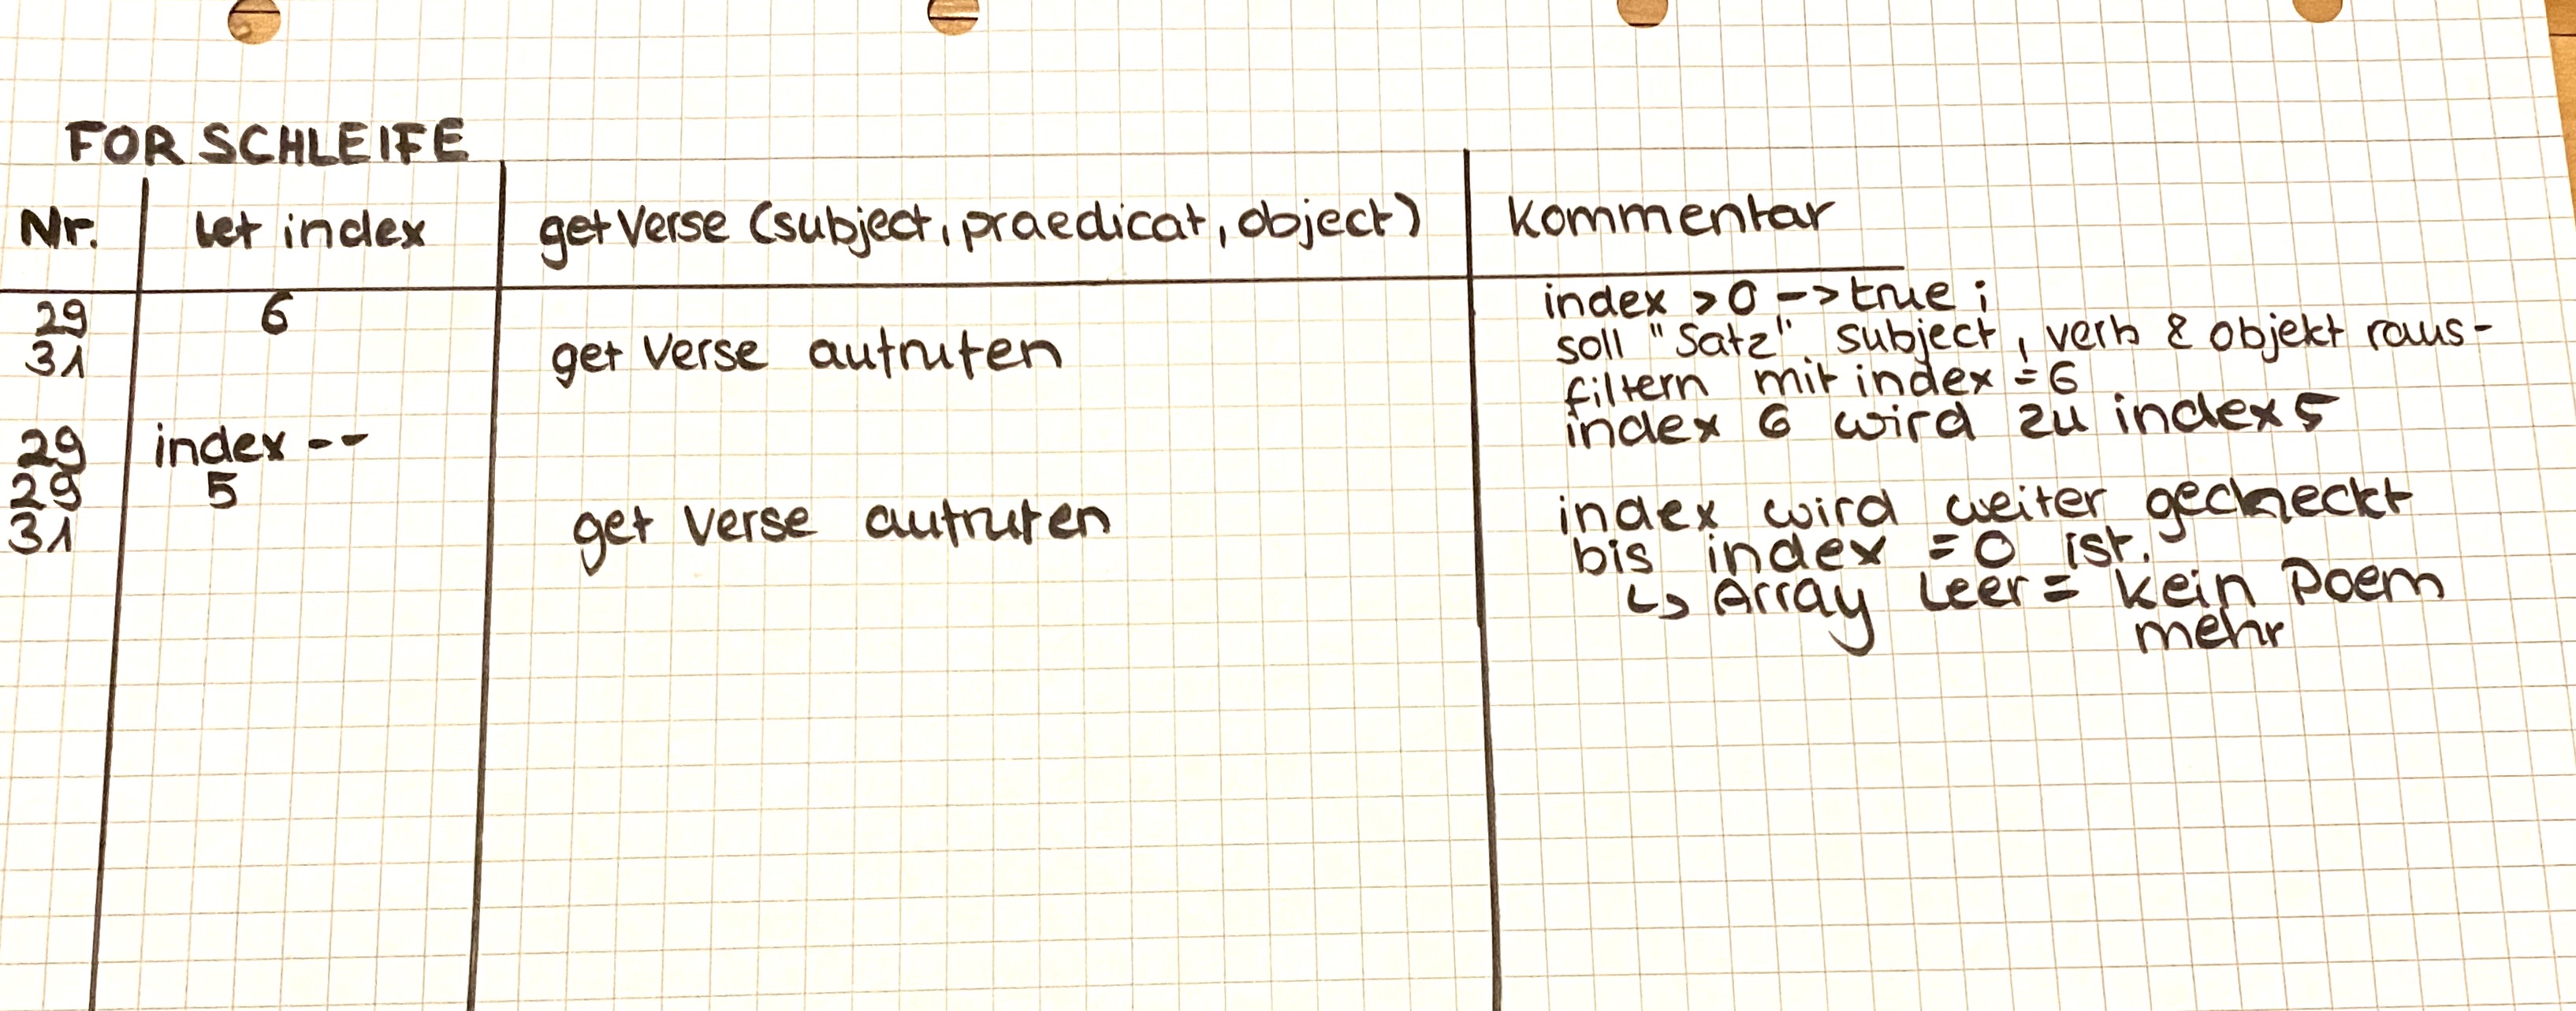 FOR SCHLEIFE
Nr. let index getVerse (subject, praedicat, object) Kommentar
29 6 index > 0 -> true ;
31 get Verse aufrufen soll "Satz" subject, verb & objekt raus-
filtern mit index = 6
29 index -- index 6 wird zu index 5
29 5
31 get Verse aufrufen index wird weiter gecheckt
bis index = 0 ist.
↳ Array leer = kein Poem
mehr